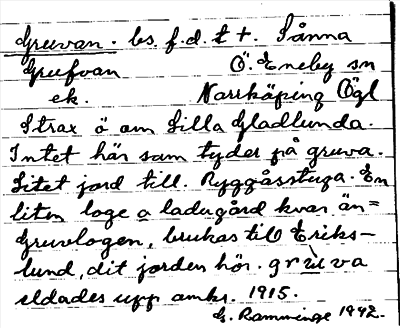 Gruvan. bs. f.d. t t. Sånna
Grufvan Ö. Eneby sn
ek. Norrköping Ögl
Strax ö om Lilla Gladlunda.
Intet här som tyder på gruva.
Litet jord till. Ryggåsstuga. En
liten loge o ladugård kvar än=
Gruvlogen, brukas till Eriks-
lund, dit jorden hör. grùva
eldades upp omkr. 1915.
G. Ramminge 1942.